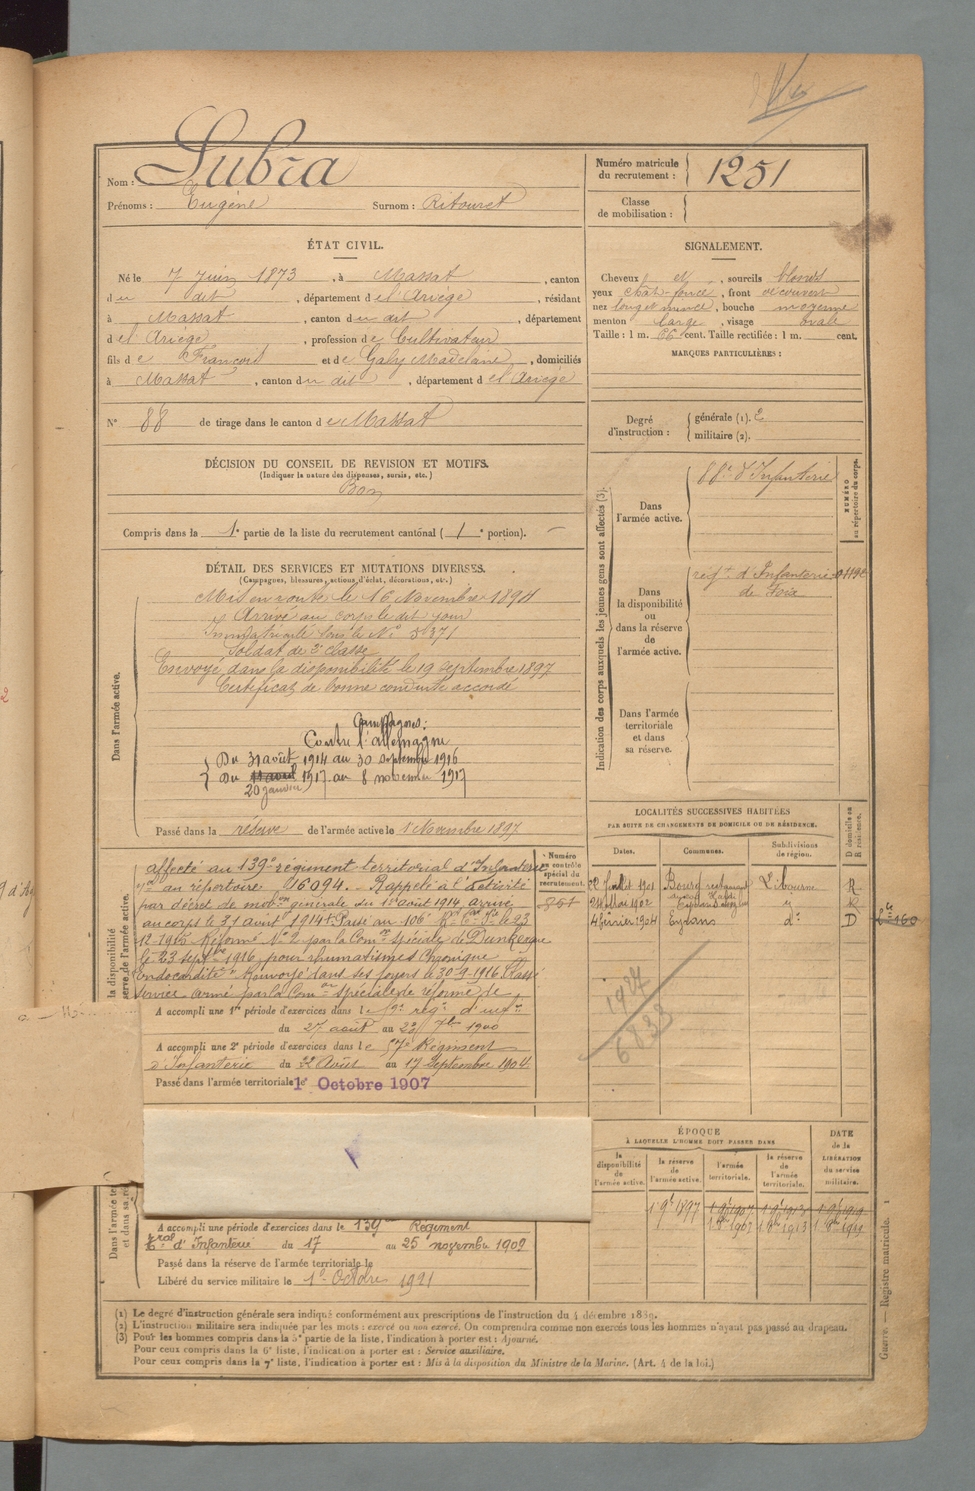 Nom : Lubra
Prénoms : Eugène Surnom : Ritouret
Numéro matricule du recrutement : 1251
Classe de mobilisation :
ÉTAT CIVIL.
Né le 7 Juin 1873, à Massat, canton
du dit, département de l'Ariège, résidant
à Massat, canton du dit, département
de l'Ariège, profession de Cultivateur
fils de François et de Galy Madelaine, domiciliés
à Massat, canton du dit, département de l'Ariège
N° 88 de tirage dans le canton de Massat
DÉCISION DU CONSEIL DE REVISION ET MOTIFS.
(Indiquer la nature des dispenses, sursis, etc.)
Bon
Compris dans la 1e partie de la liste du recrutement cantonal (1e portion).
DÉTAIL DES SERVICES ET MUTATIONS DIVERSES.
(Campagnes, blessures, actions d'éclat, décorations, etc.)
Dans l'armée active.
Mis en route le 16 Novembre 1894
Arrivé au corps le dit jour
Immatriculé sous le N° 5371
Soldat de 2e classe
Envoyé dans la disponibilité le 19 septembre 1897
Certificat de bonne conduite accordé
Campagnes :
Contre l'Allemagne
Du 31 août 1914 au 30 septembre 1916
Du 11 avril 1917 au 8 novembre 1917
20 janvier
Passé dans la réserve de l'armée active le 1 Novembre 1897
affecté au 139e régiment territorial d'Infanterie
au répertoire 16094. Rappelé à l'activité
par décret de mob.on générale du 1er août 1914, arrivé
au corps le 31 août 1914. Passé au 106e le 23
12-1915 Réformé N° 2 par la Com.on spéciale de Dunkerque
le 23 sept.bre 1916, pour rhumatismes Chronique
Endocardite. Renvoyé dans ses foyers le 30-9-1916. Classé
service armé par la Com.on spéciale de réforme de
A accompli une 1re période d'exercices dans le rég.t d'inf.ie
du 27 août au 23 7bre 1900
A accompli une 2e période d'exercices dans le 57e Régiment
d'Infanterie du 22 Août au 17 Septembre 1904
Passé dans l'armée territoriale le 1er Octobre 1907
A accompli une période d'exercices dans le 139e Régiment
d'Infanterie du 17 au 25 novembre 1909
Passé dans la réserve de l'armée territoriale le
Libéré du service militaire le 1er Octobre 1921
Numéro au contrôle spécial du recrutement.
SIGNALEMENT.
Cheveux et, sourcils blonds
yeux chât. foncé, front découvert
nez long et mince, bouche moyenne
menton large, visage ovale
Taille : 1 m. 66 cent. Taille rectifiée : 1 m. cent.
MARQUES PARTICULIÈRES :
Degré d'instruction : générale (1). 2
militaire (2).
Indication des corps auxquels les jeunes gens sont affectés (3).
NUMÉRO au répertoire du corps.
Dans l'armée active. 88e d'Infanterie
Dans la disponibilité ou dans la réserve de l'armée active. rég.t d'Infanterie de Foix
Dans l'armée territoriale et dans sa réserve.
LOCALITÉS SUCCESSIVES HABITÉES
PAR SUITE DE CHANGEMENTS DE DOMICILE OU DE RÉSIDENCE.
Dates. Communes. Subdivisions de région. D domicile ou R résidence.
22 Juillet 1901 Bourg Libourne R
24 Mai 1902 R
4 février 1904 Eyzans d° D
1927
6833
ÉPOQUE
À LAQUELLE L'HOMME DOIT PASSER DANS
la disponibilité de l'armée active. la réserve de l'armée active. l'armée territoriale. la réserve de l'armée territoriale. DATE de la LIBÉRATION du service militaire.
1 9bre 1897 1 9bre 1907 1 9bre 1913 1 9bre 1919
(1) Le degré d'instruction générale sera indiqué conformément aux prescriptions de l'instruction du 4 décembre 1889.
(2) L'instruction militaire sera indiquée par les mots : exercé ou non exercé. On comprendra comme non exercés tous les hommes n'ayant pas passé au drapeau.
(3) Pour les hommes compris dans la 5e partie de la liste, l'indication à porter est : Ajourné.
Pour ceux compris dans la 6e liste, l'indication à porter est : Service auxiliaire.
Pour ceux compris dans la 7e liste, l'indication à porter est : Mis à la disposition du Ministre de la Marine. (Art. 4 de la loi.)
Guerre. — Registre matricule. 1